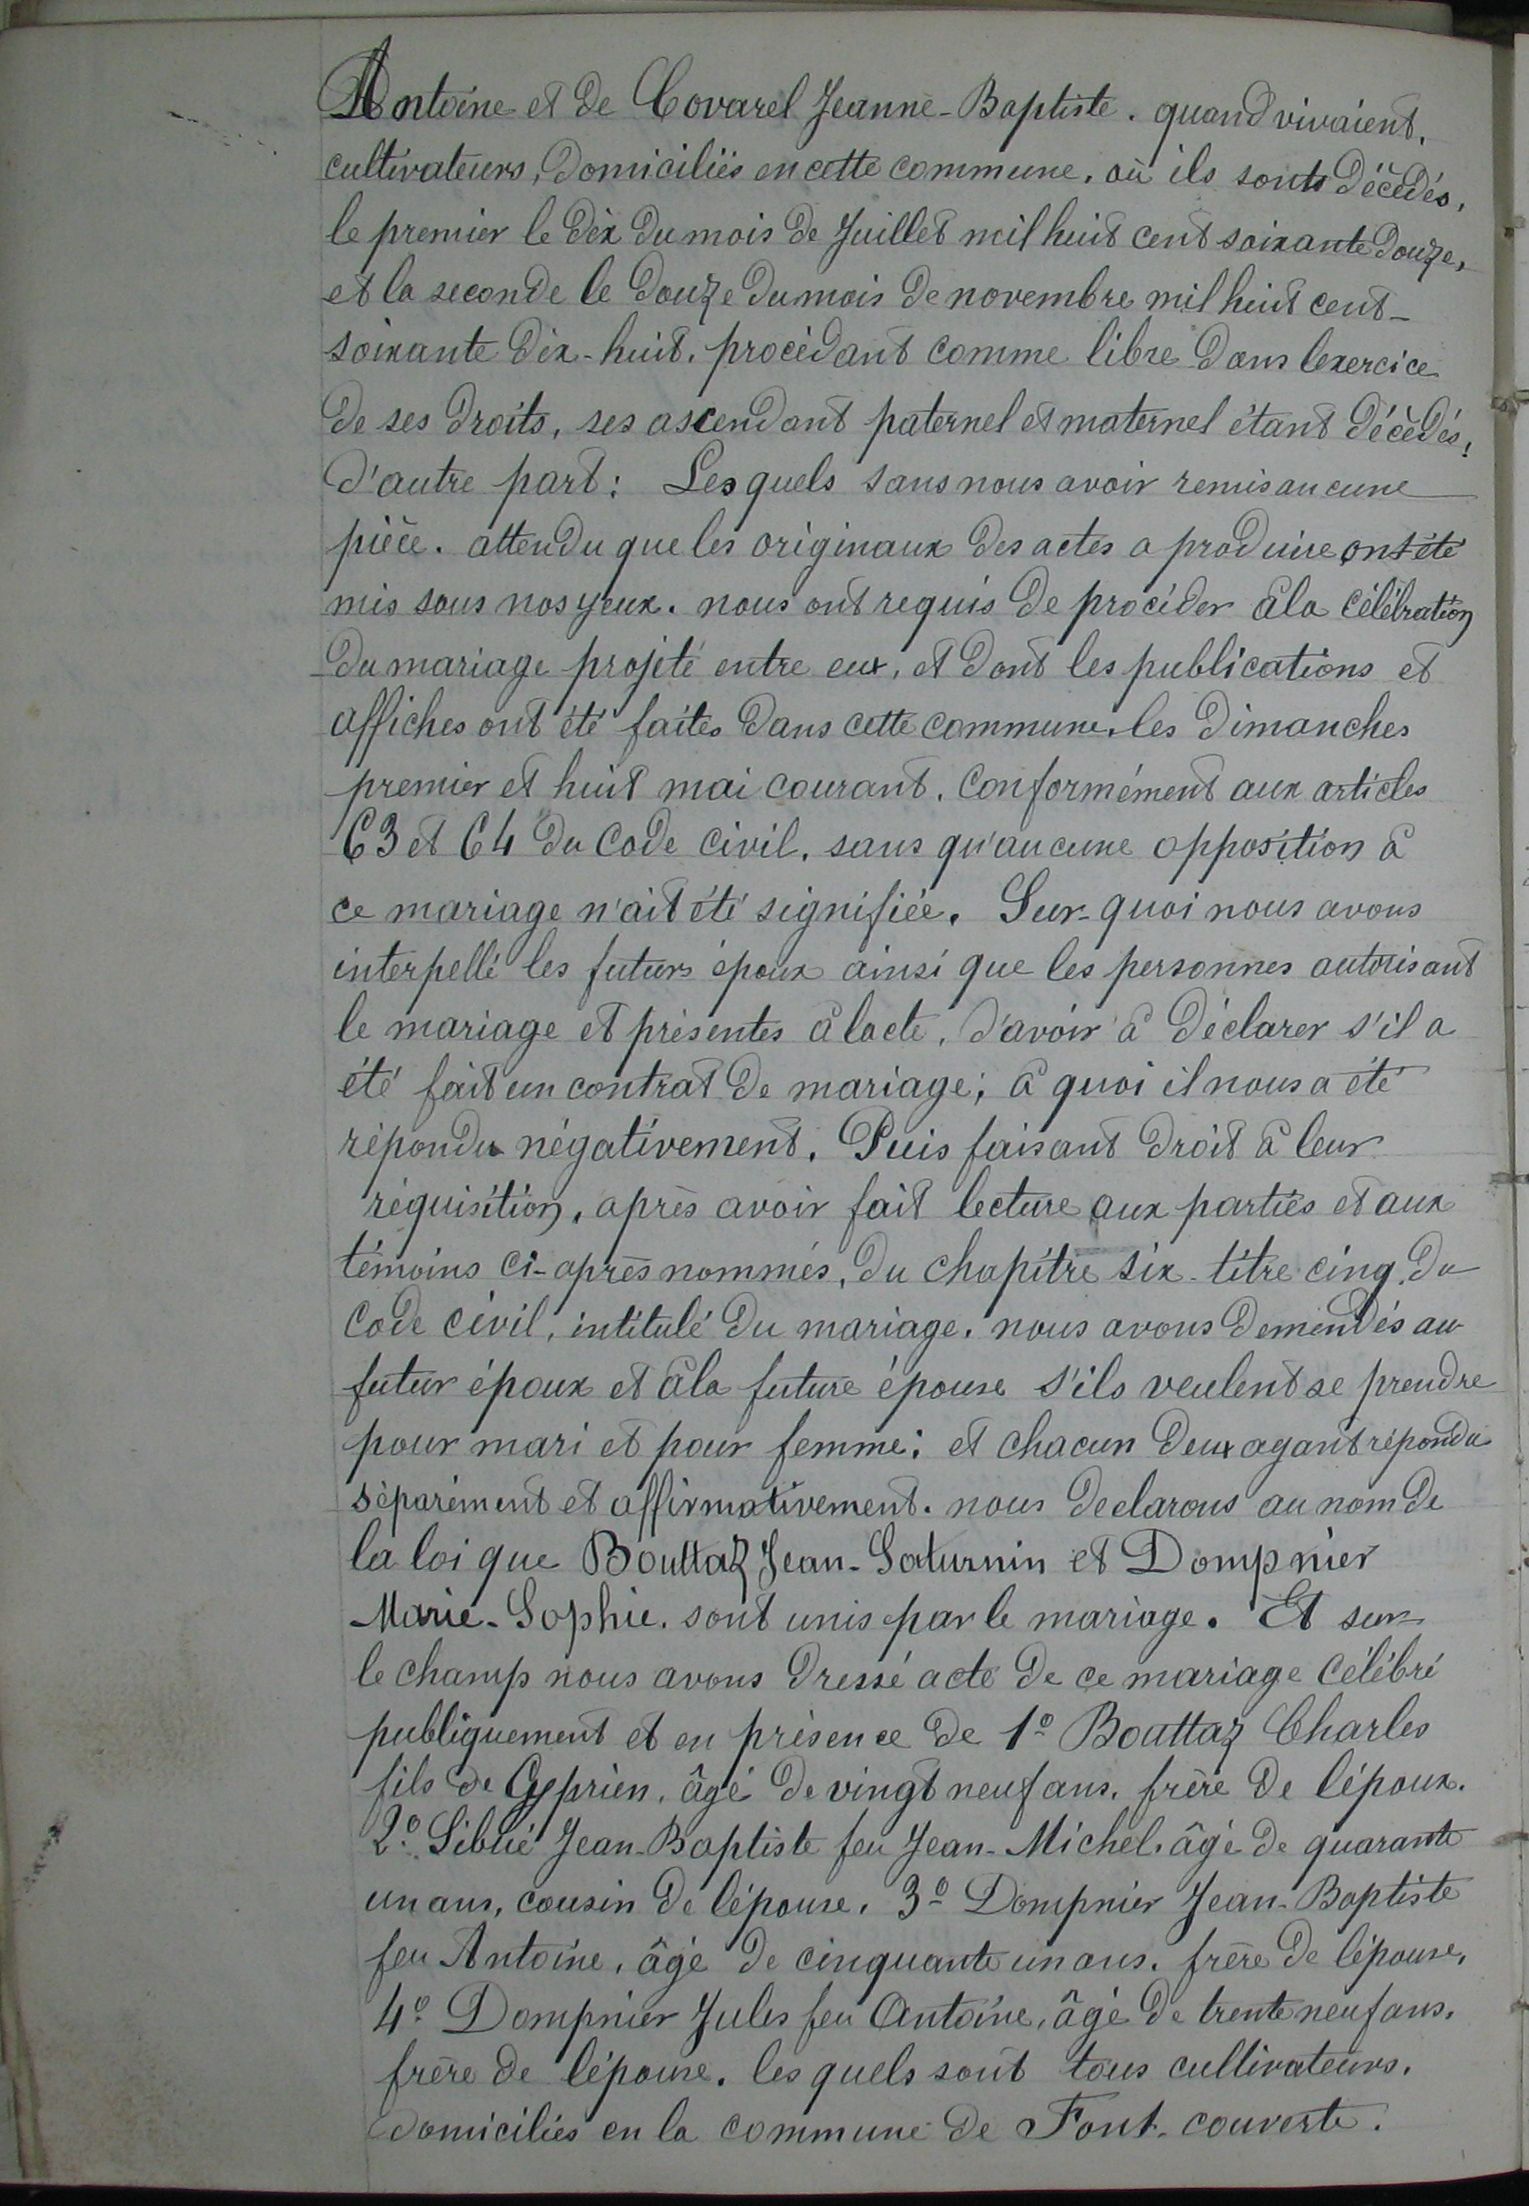 Antoine et de Covarel Jeanne-Baptiste. quand vivaient.
cultivateurs, domiciliés en cette commune, où ils sont décédés,
le premier le dix du mois de Juillet mil huit cent soixante douze,
et la seconde le douze du mois de novembre mil huit cent-
soixante dix-huit. procédant comme libre dans lexercice
de ses droits, ses ascendant paternel et maternel étant décédés,
d'autre part: Lesquels sans nous avoir remis aucune
pièce. attendu que les originaux des actes a produire ont été
mis sous nos yeux. nous ont requis de procéder à la célébration
du mariage projeté entre eux, et dont les publications et
affiches ont été faites dans cette commune, les dimanches
premier et huit mai courant. Conformément aux articles
63 et 64 du Code civil. sans qu'aucune opposition à
ce mariage n'ait été signifiée. Sur-quoi nous avons
interpellé les futurs époux ainsi que les personnes autorisant
le mariage et présentes à lacte, d'avoir à déclarer s'il a
été fait un contrat de mariage; à quoi il nous a été
répondu négativement. Puis faisant droit à leur
réquisition, après avoir fait lecture aux parties et aux
témoins ci-après nommés, du chapitre six-titre cinq du
Code civil, intitulé du mariage. nous avons demendés au
futur époux et à la future épouse s'ils veulent se prendre
pour mari et pour femme; et chacun deux ayant répondu
séparément et affirmativement. nous declarons au nom de
la loi que Bouttaz Jean-Saturnin et Dompnier
Marie-Sophie. sont unis par le mariage. Et sur-
le champ nous avons dressé acte de ce mariage célébré
publiquement et en présence de 1º Bouttaz Charles
fils de Cyprien, âgé de vingt neuf ans, frère de lépoux.
2º Sibué Jean-Baptiste feu Jean-Michel, âgé de quarante
un ans, cousin de lépouse. 3º Dompnier Jean-Baptiste
feu Antoine, âgé de cinquante un ans. frère de lépouse,
4º Dompnier Jules feu Antoine, âgé de trente neuf ans.
frère de lépouse. lesquels sont tous cultivateurs.
domiciliés en la commune de Font-couverte.